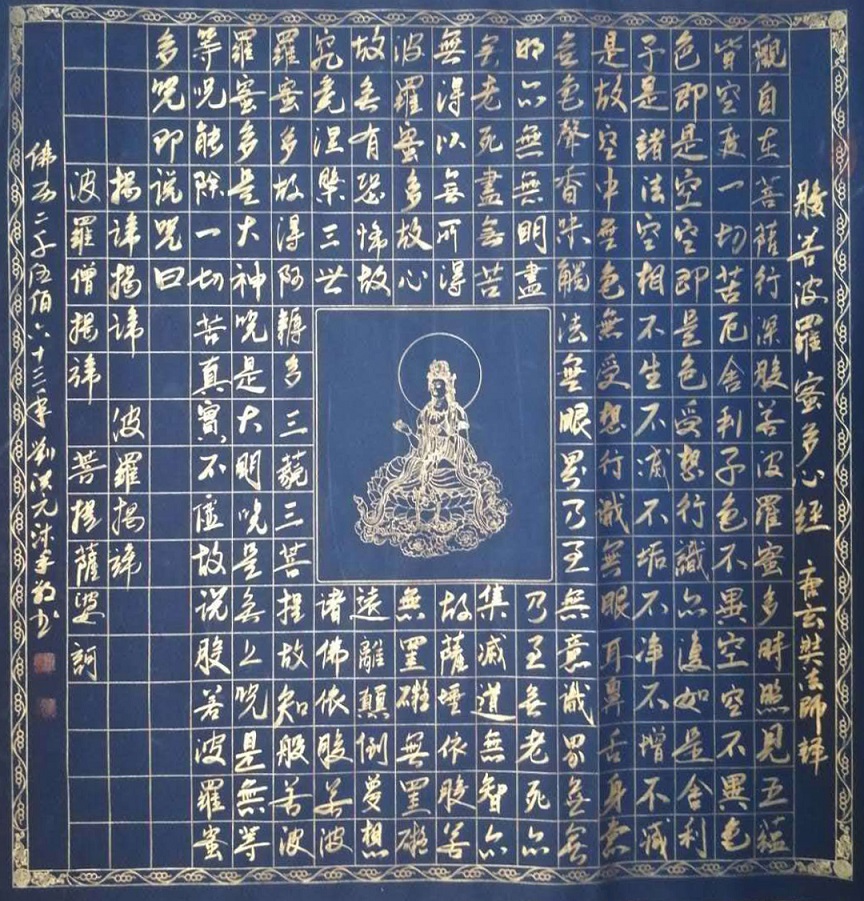 般若波羅蜜多心經 唐玄奘法師譯
觀自在菩薩行深般若波羅蜜多時照見五蘊
皆空度一切苦厄舍利子色不異空空不異色
色即是空空即是色受想行識亦復如是舍利
子是諸法空相不生不滅不垢不淨不增不減
是故空中無色無受想行識無眼耳鼻舌身意
無色聲香味觸法無眼界乃至無意識界無無
明亦無無明盡乃至無老死亦
無老死盡無苦集滅道無智亦
無得以無所得故薩埵依般若
波羅蜜多故心無罣礙無罣礙
故無有恐怖故遠離顛倒夢想
究竟涅槃三世諸佛依般若波
羅蜜多故得阿耨多三藐三菩提故知般若波
羅蜜多是大神咒是大明咒是無上咒是無等
等咒能除一切苦真實不虛故說般若波羅蜜
多咒即說咒曰
揭諦揭諦 波羅揭諦
波羅僧揭諦 菩提薩婆訶
佛历二千伍佰六十三年劉洪元沐手敬书